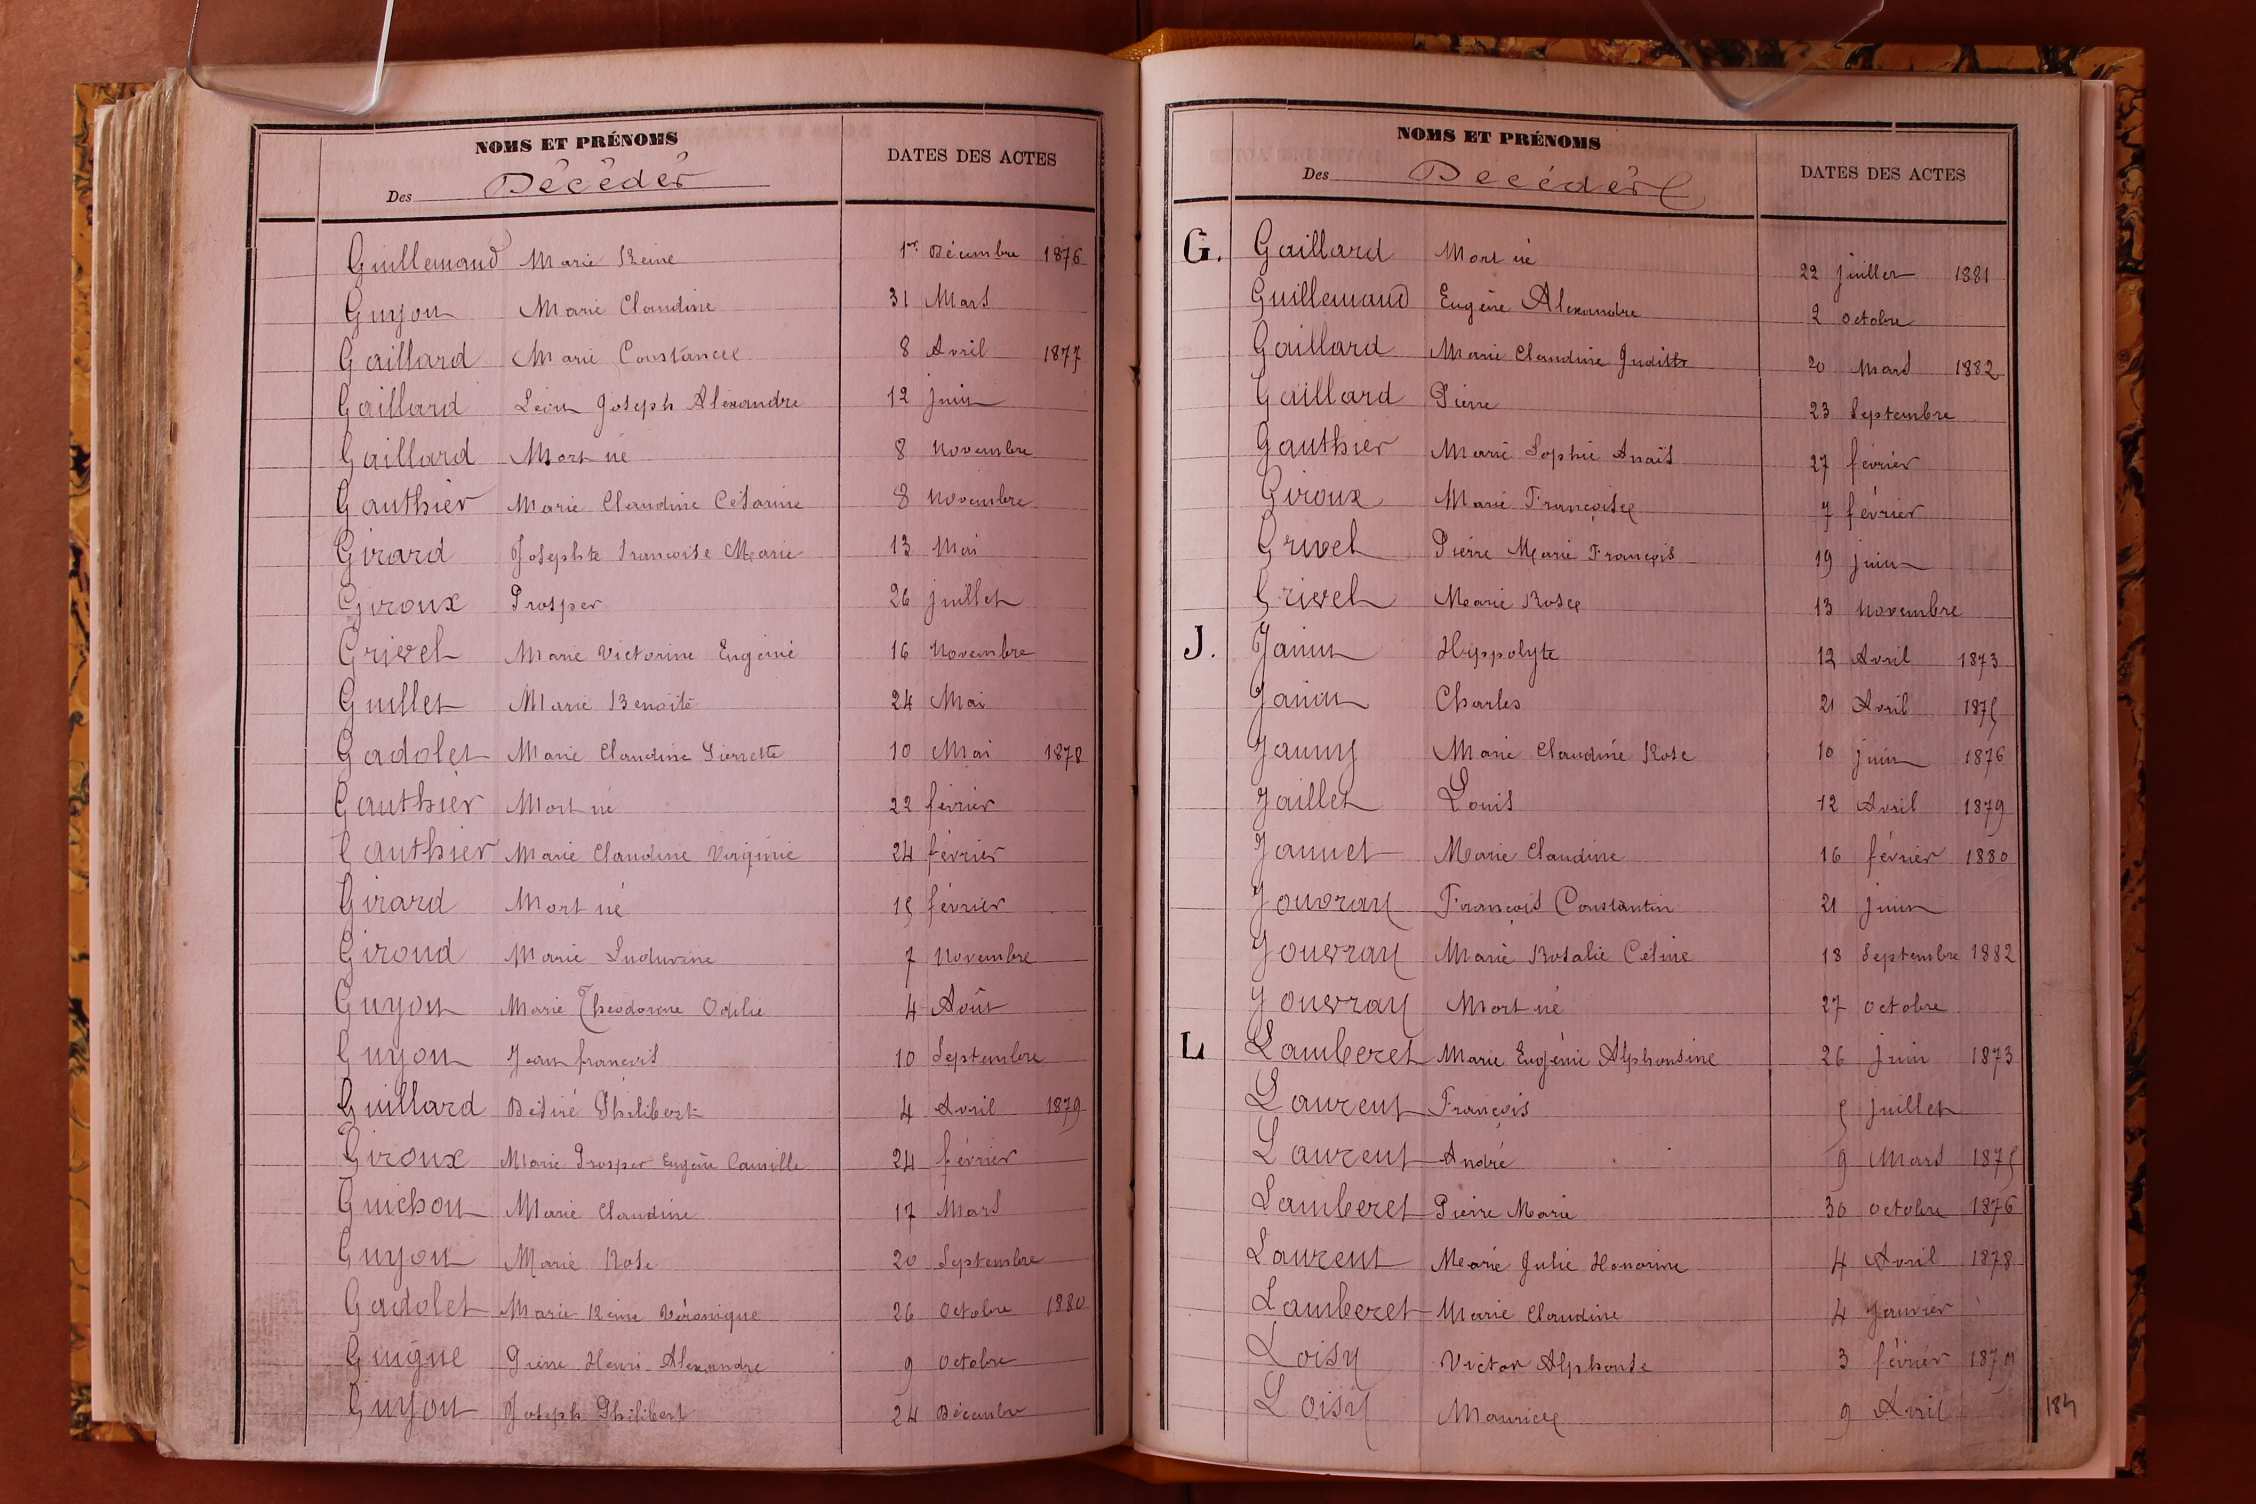 NOMS ET PRÉNOMS
DATES DES ACTES
Des Décédés
Guillemaud Marie Reine 1er Décembre 1876
Guyon Marie Claudine 31 Mars
Gaillard Marie Constance 8 Avril 1877
Gaillard Léon Joseph Alexandre 12 juin
Gaillard Mort né 8 Novembre
Gauthier Marie Claudine Césarine 8 Novembre
Girard Josephte Francoise Marie 13 Mai
Giroux Prosper 26 juillet
Grivel Marie Victorine Eugénie 16 Novembre
Guillet Marie Benoite 24 Mai
Gadolet Marie Claudine Pierrette 10 Mai 1878
Gauthier Mort né 22 février
Gauthier Marie Claudine Virginie 24 février
Girard Mort né 15 février
Giroud Marie 7 Novembre
Guyon Marie Théodorine Odilie 4 Août
Guyon Jean francois 10 Septembre
Guillard Désiré Philibert 4 Avril 1879
Giroux Marie Prosper Eugène Camille 24 février
Guichon Marie Claudine 17 Mars
Guyon Marie Rose 20 Septembre
Gadolet Marie Reine Véronique 26 Octobre 1880
Guigue Pierre Henri Alexandre 9 Octobre
Guyon Joseph Philibert 24 Décembre
NOMS ET PRÉNOMS
DATES DES ACTES
Des Décédés
G. Gaillard Mort né 22 juillet 1881
Guillemaud Eugène Alexandre 2 octobre
Gaillard Marie Claudine Judith 20 Mars 1882
Gaillard Pierre 23 Septembre
Gauthier Marie Sophie Anaïs 27 février
Giroux Marie Françoise 7 février
Grivel Pierre Marie François 19 juin
Grivel Marie Rose 13 Novembre
J. Janin Hippolyte 12 Avril 1873
Janin Charles 21 Avril 1875
Janny Marie Claudine Rose 10 juin 1876
Jaillet Louis 12 Avril 1879
Jannet Marie Claudine 16 février 1880
Jouvray François Constantin 21 juin
Jouvray Marie Rosalie Céline 18 Septembre 1882
Jouvray Mort né 27 octobre
L Lamberet Marie Eugénie Alphonsine 26 Juin 1873
Laurent François 5 Juillet
Laurent André 9 Mars 1875
Lamberet Pierre Marie 30 octobre 1876
Laurent Marie Julie Honorine 4 Avril 1878
Lamberet Marie Claudine 4 Janvier
Loisy Victor Alphonse 3 février
Loisy Maurice 9 Avril